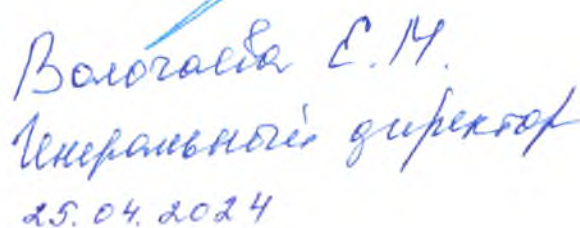 Волочаева Е.М.
Генеральный директор
25.04.2024